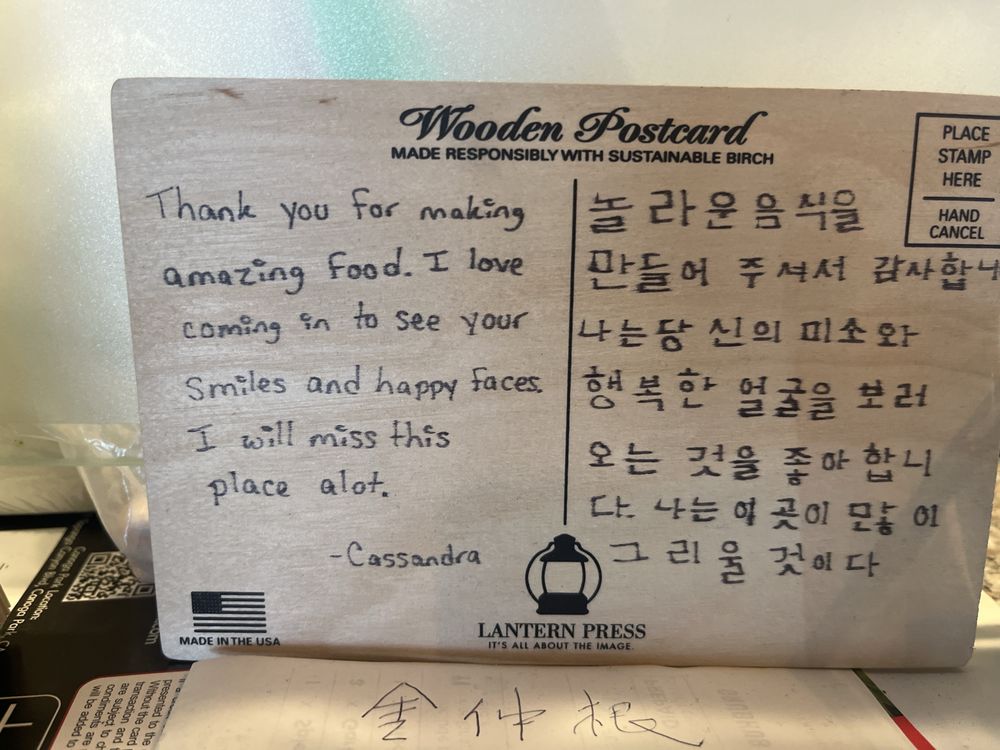 Wooden Postcard
MADE RESPONSIBLY WITH SUSTAINABLE BIRCH
PLACE
STAMP
HERE
HAND
CANCEL
Thank you for making
amazing food. I love
coming in to see your
Smiles and happy faces.
I will miss this
place alot.
-Cassandra
놀라운음식을
만들어 주셔서 감사합니
나는당신의 미소와
행복한 얼굴을 보러
오는 것을 좋아합니
다. 나는 이곳이 많이
그리울 것이다
MADE IN THE USA
LANTERN PRESS
IT'S ALL ABOUT THE IMAGE.
Canoga Park Location:
condiments are
will be added to
金仲根